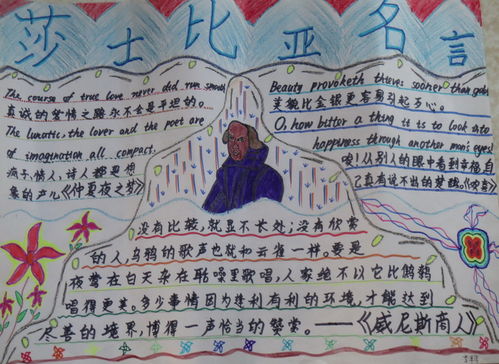 莎士比亚名言
The course of true love never did run smooth
真诚的爱情之路永不会是平坦的。
The lunatic, the lover and the poet are
of imagination all compact.
疯子、情人、诗人都是想
象的产儿《仲夏夜之梦》
Beauty provoketh thieves sooner than gold
美貌比金银更容易引起歹心。
O, how bitter a thing it is to look into
happiness through another man's eyes!
唉!从别人的眼中看到幸福,自
己真有说不出的
没有比较,就显不长处;没有欣赏
的人,乌鸦的歌声也就和云雀一样。要是
夜莺在白天杂在聒噪里歌唱,人家绝不以它比鹪鹩
唱得更美。多少事情因为逢利有利的环境,才能达到
尽善的境界,博得一声恰当的赞赏。——《威尼斯商人》